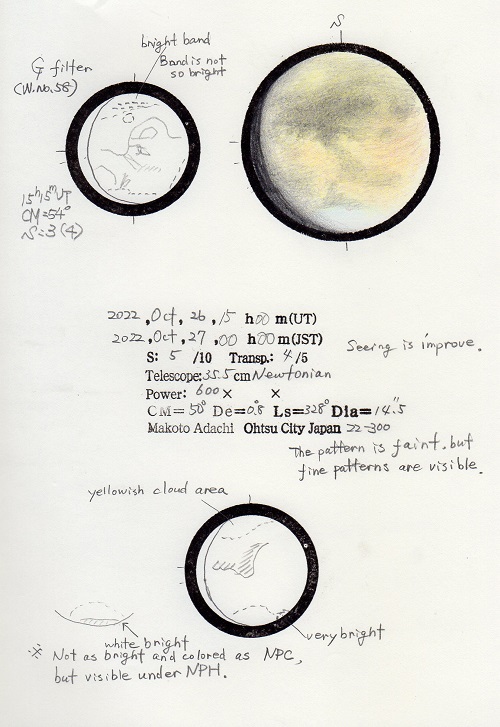 bright band
Band is not
so bright
G filter
(W.No.58)
S
15h15m UT
CM=54°
S=3(4)
2022, Oct, 26, 15 h00 m(UT)
2022, Oct, 27, 00 h00 m(JST)
S: 5 /10 Transp.: 4/5
Seeing is improve.
Telescope: 35.5 cm Newtonian
Power: 600 × ×
CM= 50° De=0.8 Ls=328° Dia=14.5"
Makoto Adachi Ohtsu City Japan 22-300
The pattern is faint. but
fine patterns are visible.
yellowish cloud area
very bright
white bright
※ Not as bright and colored as NPC,
but visible under NPH.